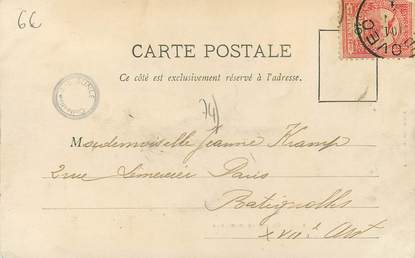 66
CARTE POSTALE
Ce côté est exclusivement réservé à l'adresse.
74
Mademoiselle Jeanne Kramp
2 rue Lemercier Paris
Batignolles
XVIIe Art